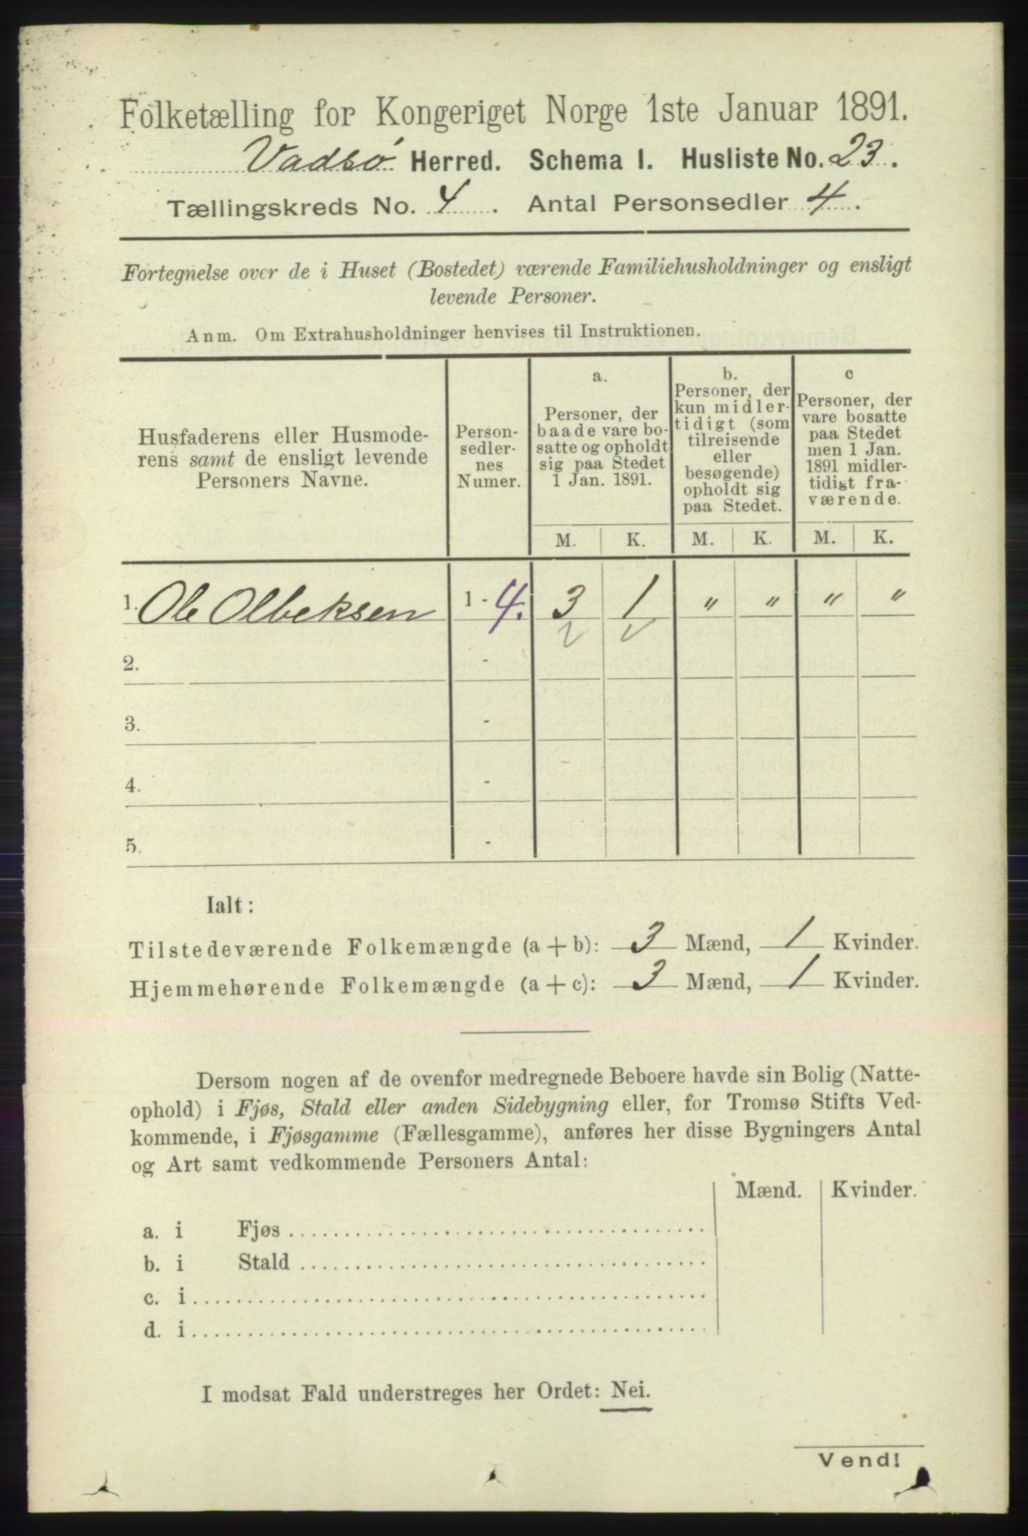 Folketælling for Kongeriget Norge 1ste Januar 1891.
Vadsø Herred. Schema I. Husliste No. 23.
Tællingskreds No. 4. Antal Personsedler 4.
Fortegnelse over de i Huset (Bostedet) værende Familiehusholdninger og ensligt
levende Personer.
Anm. Om Extrahusholdninger henvises til Instruktionen.
Husfaderens eller Husmode-
rens samt de ensligt levende
Personers Navne.
Person-
sedler-
nes
Numer.
a.
Personer, der
baade vare bo-
satte og opholdt
sig paa Stedet
1 Jan. 1891.
b.
Personer, der
kun midler-
tidigt (som
tilreisende
eller
besøgende)
opholdt sig
paa Stedet.
c
Personer, der
vare bosatte
paa Stedet
men 1 Jan.
1891 midler-
tidigt fra-
værende.
M. K. M. K. M. K.
1. Ole Olbeksen 1 - 4. 3 1 " " " "
2. -
3. -
4. -
5. -
Ialt:
Tilstedeværende Folkemængde (a + b): 3 Mænd, 1 Kvinder.
Hjemmehørende Folkemængde (a + c): 3 Mænd, 1 Kvinder.
Dersom nogen af de ovenfor medregnede Beboere havde sin Bolig (Natte-
ophold) i Fjøs, Stald eller anden Sidebygning eller, for Tromsø Stifts Ved-
kommende, i Fjøsgamme (Fællesgamme), anføres her disse Bygningers Antal
og Art samt vedkommende Personers Antal:
Mænd. Kvinder.
a. i Fjøs
b. i Stald
c. i
d. i
I modsat Fald understreges her Ordet: Nei.
Vend!